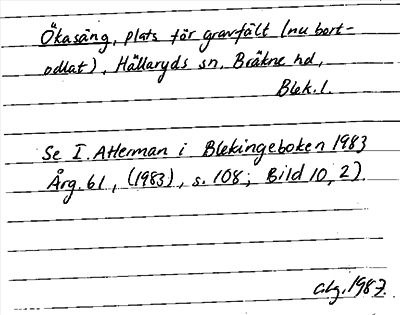 Ökasäng, plats för gravfält (nu bort-
odlat), Hällaryds sn, Bräkne hd,
Blek.l.
Se I. Atterman i Blekingeboken 1983
Årg. 61, (1983), s. 108; Bild 10, 2).
C.Lg. 1987.